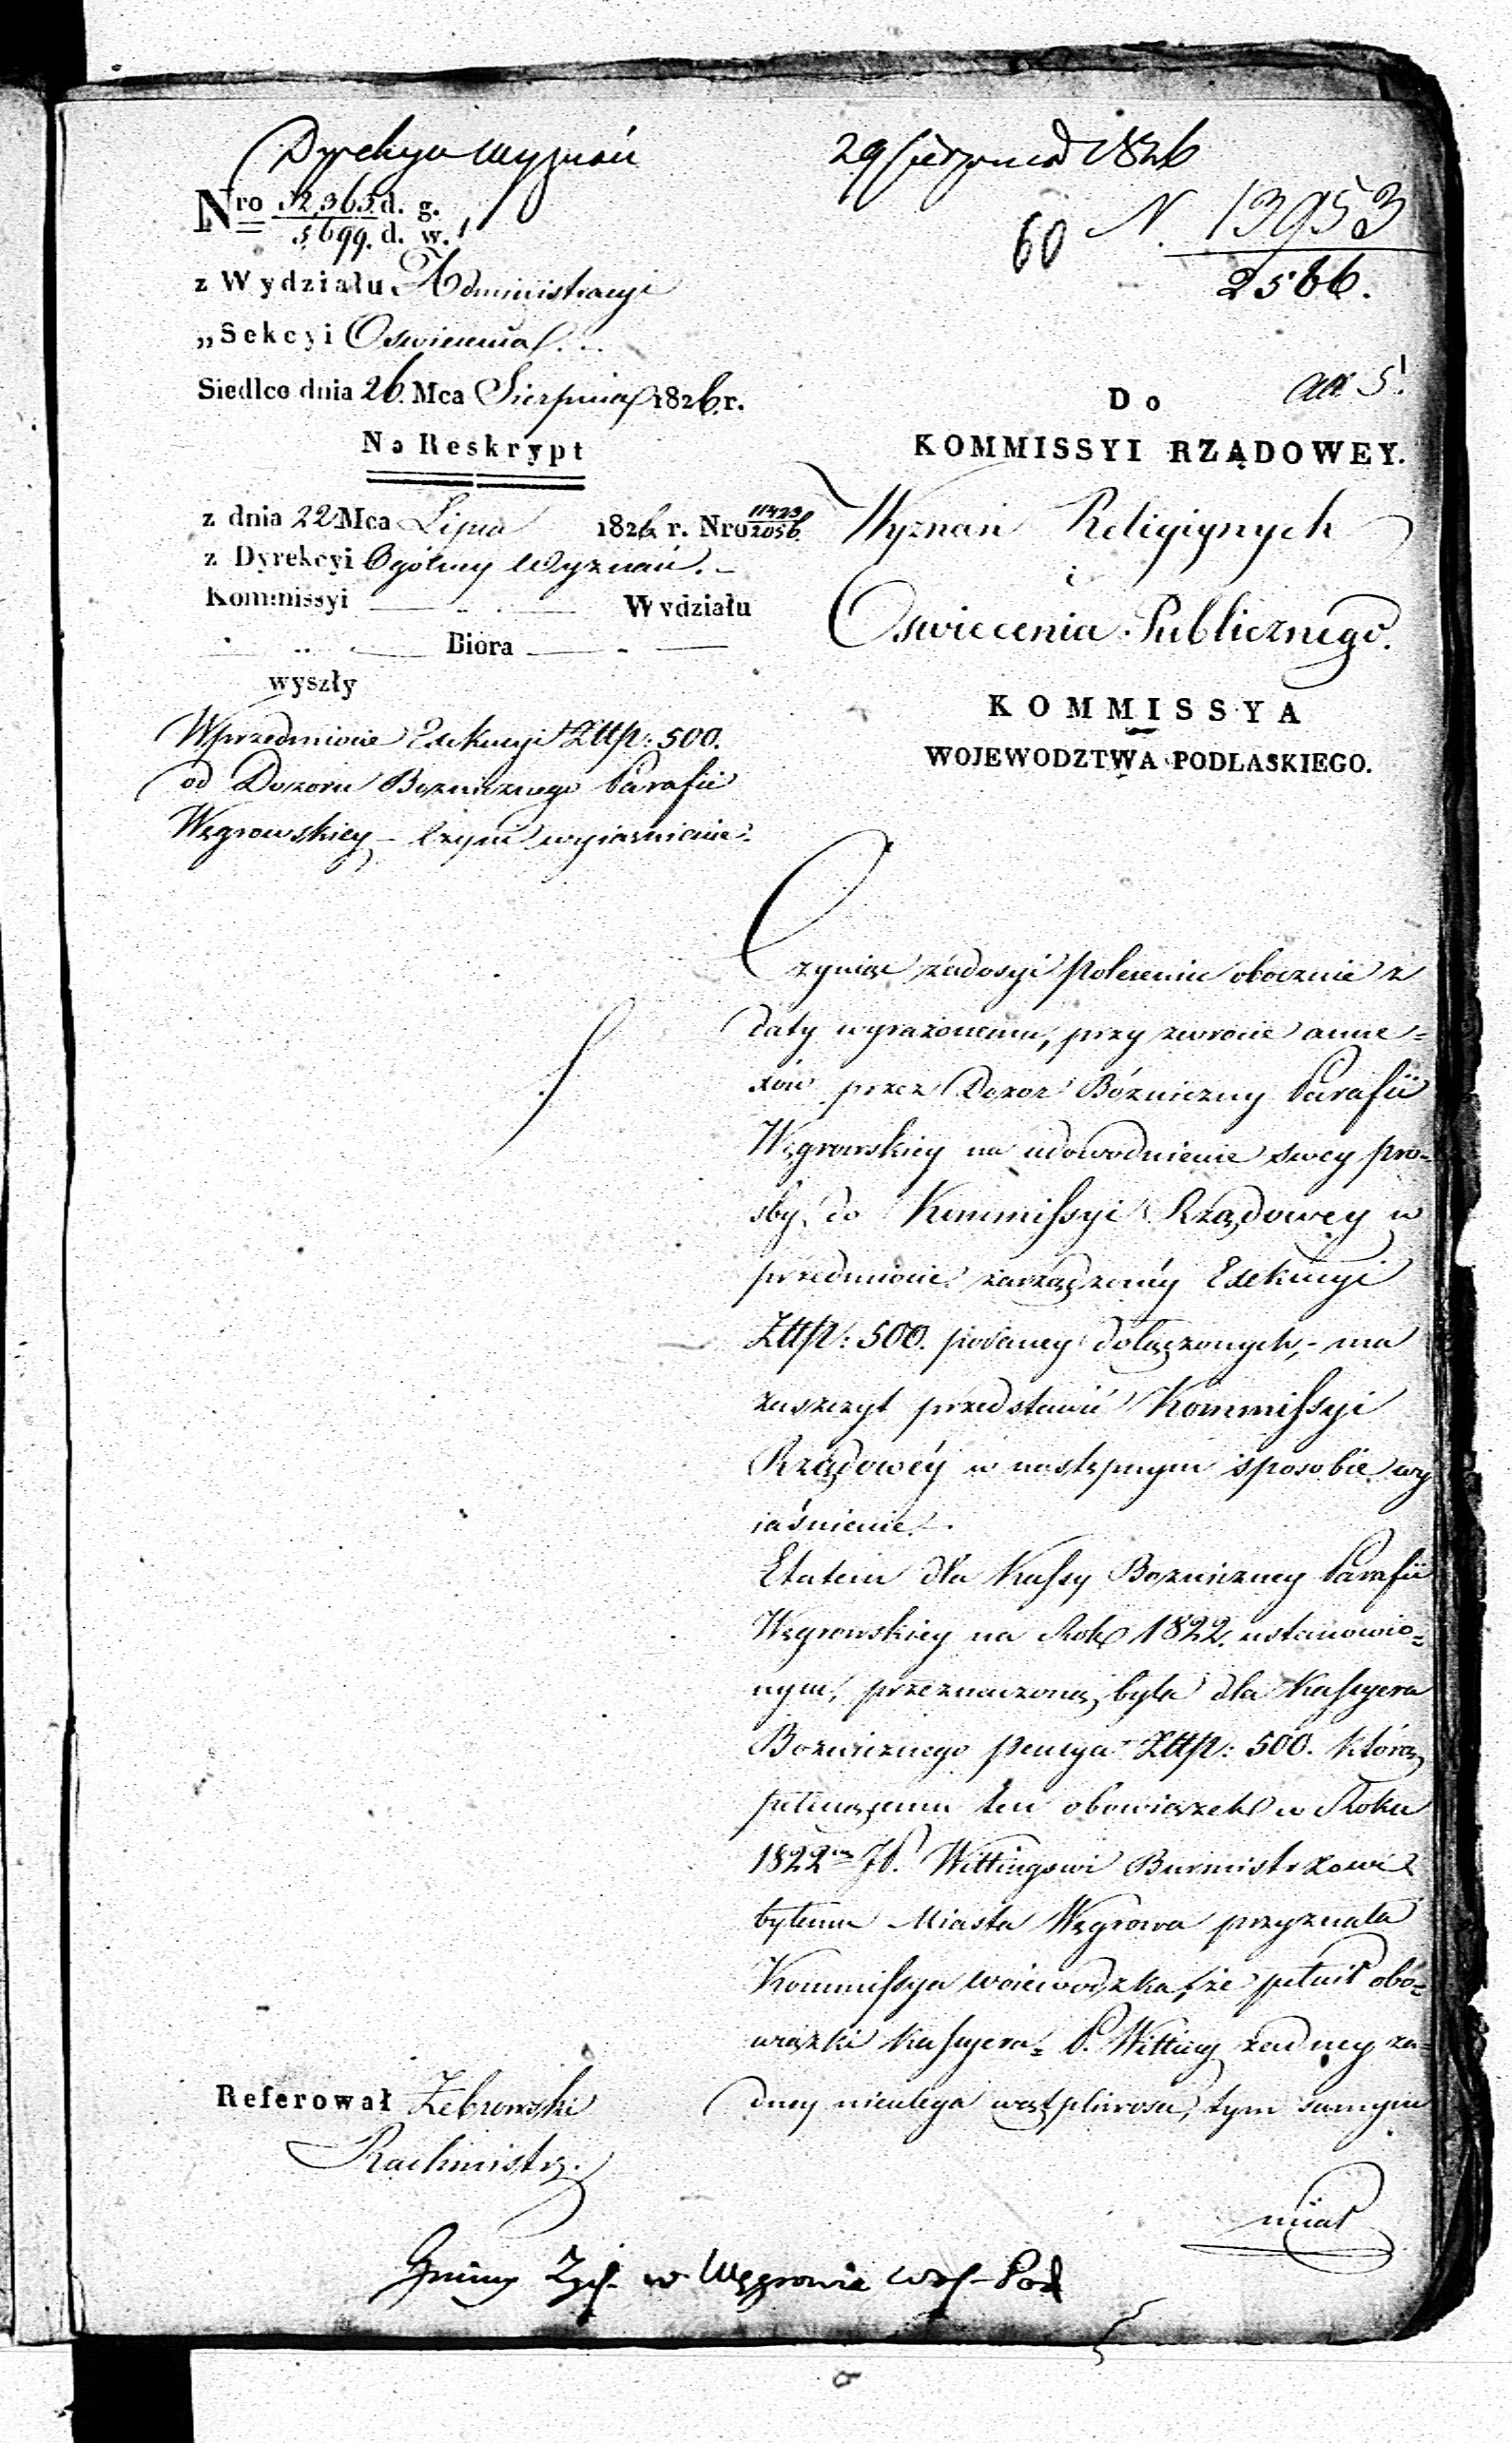 Dyrekcya Wyznań
29 Sierpnia 1826
Nro 52,365 d. g.
5,699. d. w.
60 N. 13953
2586.
z Wydziału Administracyi
„Sekcyi Oswiecenia
Siedlce dnia 26. Mca Sierpnia 1826 r.
Na Reskrypt
z dnia 22 Mca Lipca 1826 r. Nro 11423
2056.
z Dyrekcyi Ogólney Wyznań. –
Kommissyi Wydziału
Biora
wyszły
Wprzedmiocie Exekucyi Złłp: 500.
od Dozoru Boznicznego Parafii
Węgrowskiey – czyni wyiasnienie.
Do
KOMMISSYI RZĄDOWEY.
Wyznań Religiynych
i
Oswiecenia Publicznego.
KOMMISSYA
WOJEWODZTWA PODLASKIEGO.
Czyniąc zadosyć poleceniu obocznie z
daty wyrażonemu, przy zwrocie anne-
xów przez Dozor Bózniczny Parafii
Węgrowskiey na udowodnienie swey pro-
sby do Kommissyi Rządowey w
przedmiocie zarządzonéy Exekucyi
Złłp: 500. podaney dołączonych, – ma
zaszczyt przedstawić Kommissyi
Rządowéy w następnym sposobie wy
iaśnienie. –
Etatem dla Kassy Bozniczney Parafii
Węgrowskiey na Rok 1822. ustanowio-
nym, przeznaczoną była dla Kassyera
Boznicznego pensya Złłp: 500. którą
pełniącemu ten obowiązek w Roku
1822m JP. Wittingowi Burmistrzowi
byłemu Miasta Węgrowa przyznała
Kommissya Woiewodzka, że pełnił obo-
wiązki Kassyera P. Witting żadney ża-
dney nieulega wątpliwosci, tym samym
miał
Referował Żebrowski
Rachmistrz.
Gminy Żyd. w Węgrowie Woj. Pod